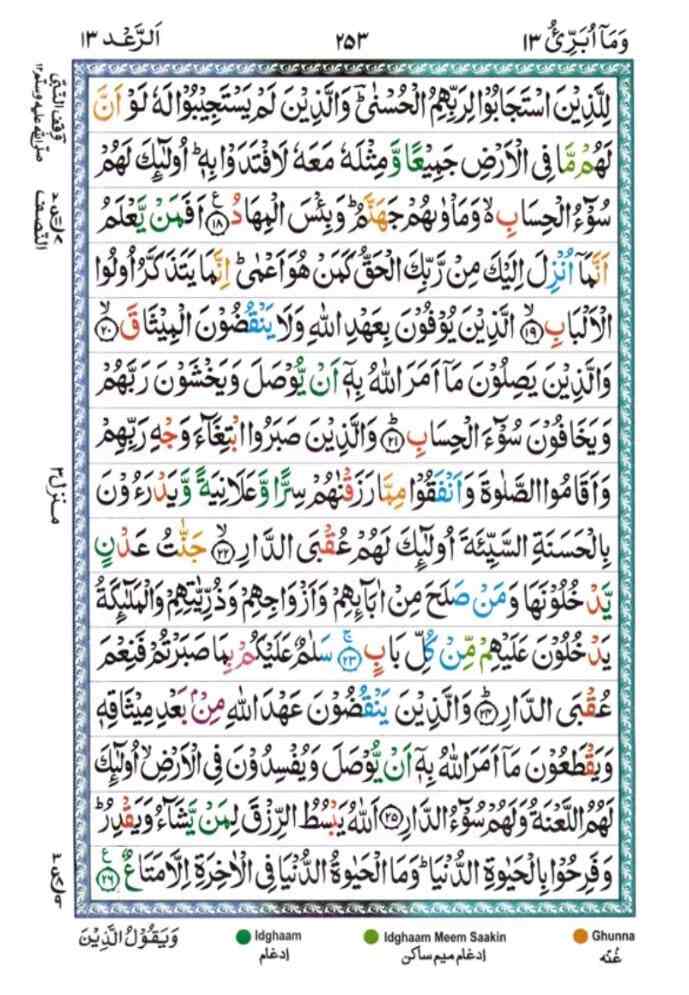 وَمَآ اُبَرِّئُ ١٣
٢٥٣
اَلرَّعْد ١٣
لِلَّذِيْنَ اسْتَجَابُوْا لِرَبِّهِمُ الْحُسْنٰىؕ وَالَّذِيْنَ لَمْ يَسْتَجِيْبُوْا لَهٗ لَوْ اَنَّ
لَهُمْ مَّا فِى الْاَرْضِ جَمِيْعًا وَّمِثْلَهٗ مَعَهٗ لَافْتَدَوْا بِهٖؕ اُولٰٓئِكَ لَهُمْ
سُوْٓءُ الْحِسَابِ ۙ وَمَاْوٰىهُمْ جَهَنَّمُؕ وَبِئْسَ الْمِهَادُ ۧ‏﴿۱۸﴾ اَفَمَنْ يَّعْلَمُ
اَنَّمَآ اُنْزِلَ اِلَيْكَ مِنْ رَّبِّكَ الْحَقُّ كَمَنْ هُوَ اَعْمٰىؕ اِنَّمَا يَتَذَكَّرُ اُولُوا
الْاَلْبَابِۙ‏﴿۱۹﴾ الَّذِيْنَ يُوْفُوْنَ بِعَهْدِ اللّٰهِ وَلَا يَنْقُضُوْنَ الْمِيْثَاقَۙ‏﴿۲۰﴾
وَالَّذِيْنَ يَصِلُوْنَ مَآ اَمَرَ اللّٰهُ بِهٖۤ اَنْ يُّوْصَلَ وَيَخْشَوْنَ رَبَّهُمْ
وَيَخَافُوْنَ سُوْٓءَ الْحِسَابِؕ‏﴿۲۱﴾ وَالَّذِيْنَ صَبَرُوا ابْتِغَآءَ وَجْهِ رَبِّهِمْ
وَاَقَامُوا الصَّلٰوةَ وَاَنْفَقُوْا مِمَّا رَزَقْنٰهُمْ سِرًّا وَّعَلَانِيَةً وَّيَدْرَءُوْنَ
بِالْحَسَنَةِ السَّيِّئَةَ اُولٰٓئِكَ لَهُمْ عُقْبَى الدَّارِۙ‏﴿۲۲﴾ جَنّٰتُ عَدْنٍ
يَّدْخُلُوْنَهَا وَمَنْ صَلَحَ مِنْ اٰبَآئِهِمْ وَاَزْوَاجِهِمْ وَذُرِّيّٰتِهِمْ وَالْمَلٰٓئِكَةُ
يَدْخُلُوْنَ عَلَيْهِمْ مِّنْ كُلِّ بَابٍۚ‏﴿۲۳﴾ سَلٰمٌ عَلَيْكُمْ بِمَا صَبَرْتُمْ فَنِعْمَ
عُقْبَى الدَّارِؕ‏﴿۲۴﴾ وَالَّذِيْنَ يَنْقُضُوْنَ عَهْدَ اللّٰهِ مِنْۢ بَعْدِ مِيْثَاقِهٖ
وَيَقْطَعُوْنَ مَآ اَمَرَ اللّٰهُ بِهٖۤ اَنْ يُّوْصَلَ وَيُفْسِدُوْنَ فِى الْاَرْضِۙ اُولٰٓئِكَ
لَهُمُ اللَّعْنَةُ وَلَهُمْ سُوْٓءُ الدَّارِ‏﴿۲۵﴾ اَللّٰهُ يَبْسُطُ الرِّزْقَ لِمَنْ يَّشَآءُ وَيَقْدِرُؕ
وَفَرِحُوْا بِالْحَيٰوةِ الدُّنْيَاؕ وَمَا الْحَيٰوةُ الدُّنْيَا فِى الْاٰخِرَةِ اِلَّا مَتَاعٌ ۧ‏﴿۲۶﴾
وقف النبی صلی اللہ علیہ وسلم ١٢
النصف
منزل ٣
Ghunna
غُنّه
Idghaam Meem Saakin
ادغام میم ساکن
Idghaam
ادغام
وَيَقُوْلُ الَّذِيْنَ